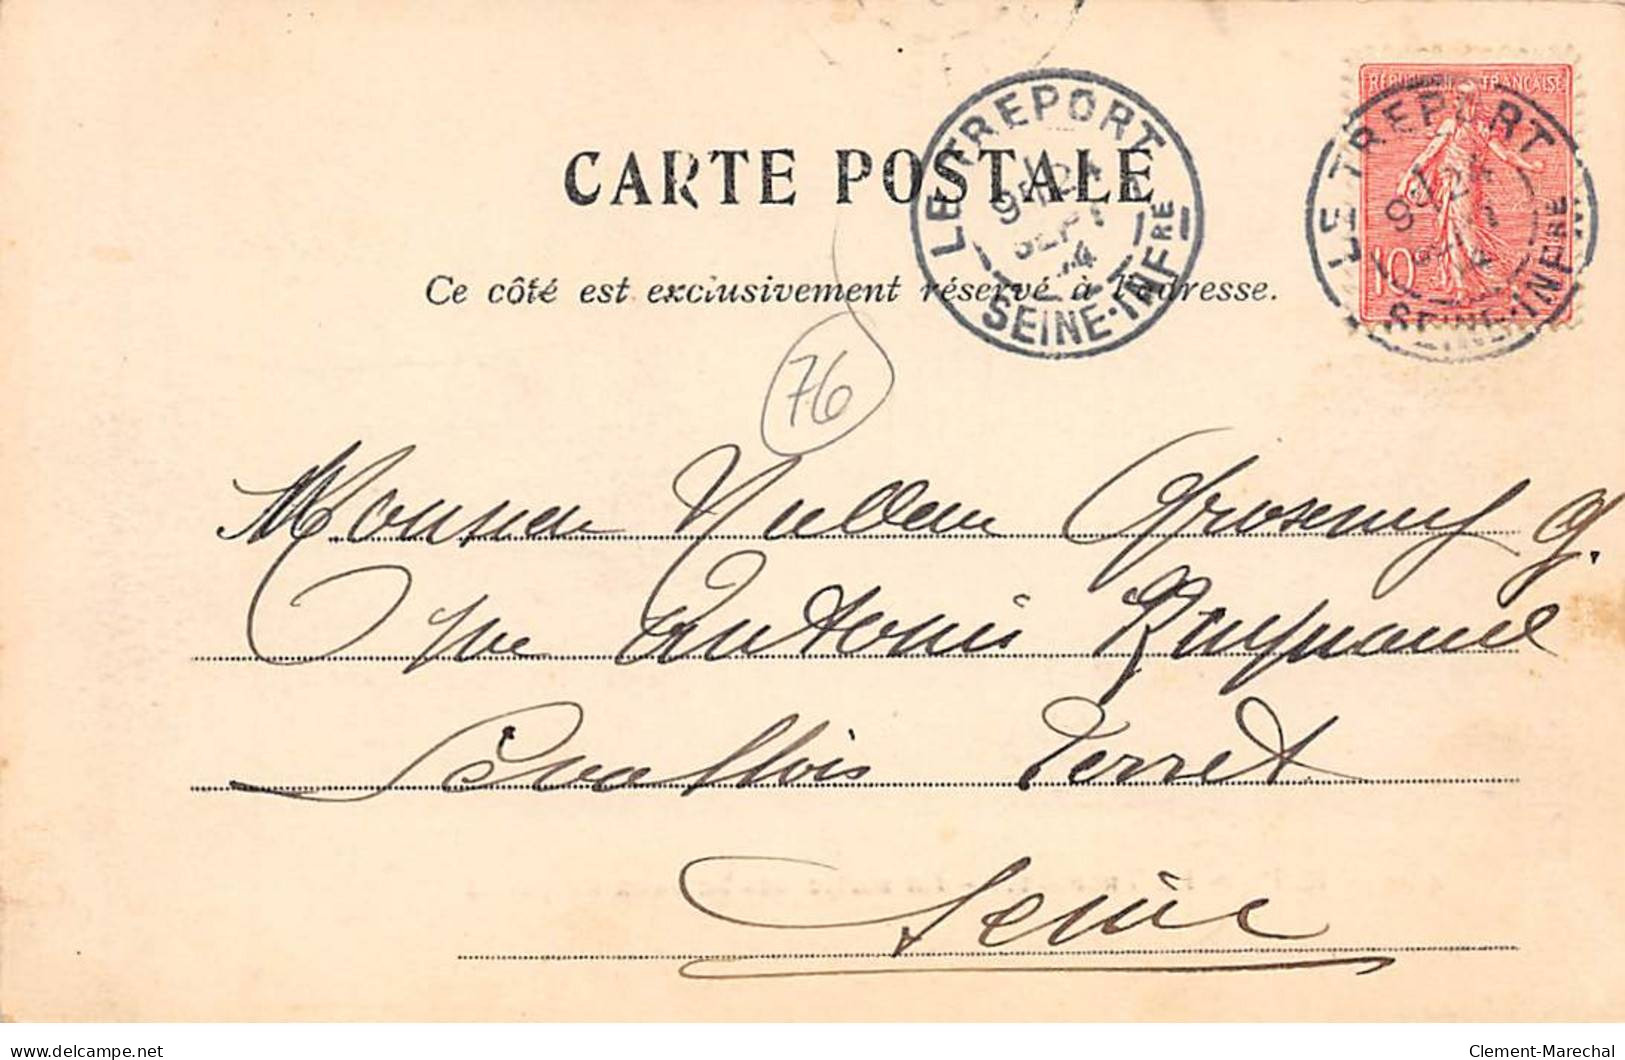 CARTE POSTALE
Ce côté est exclusivement réservé à l'adresse.
LE TREPORT
24
SEPT
SEINE-INFRE
RÉPUBLIQUE FRANÇAISE
10
LE TREPORT
24
SEINE-INFRE
76
Monsieur
Rue Antonin Raynaud
Levallois Perret
Seine
delcampe.net
Clement-Marechal